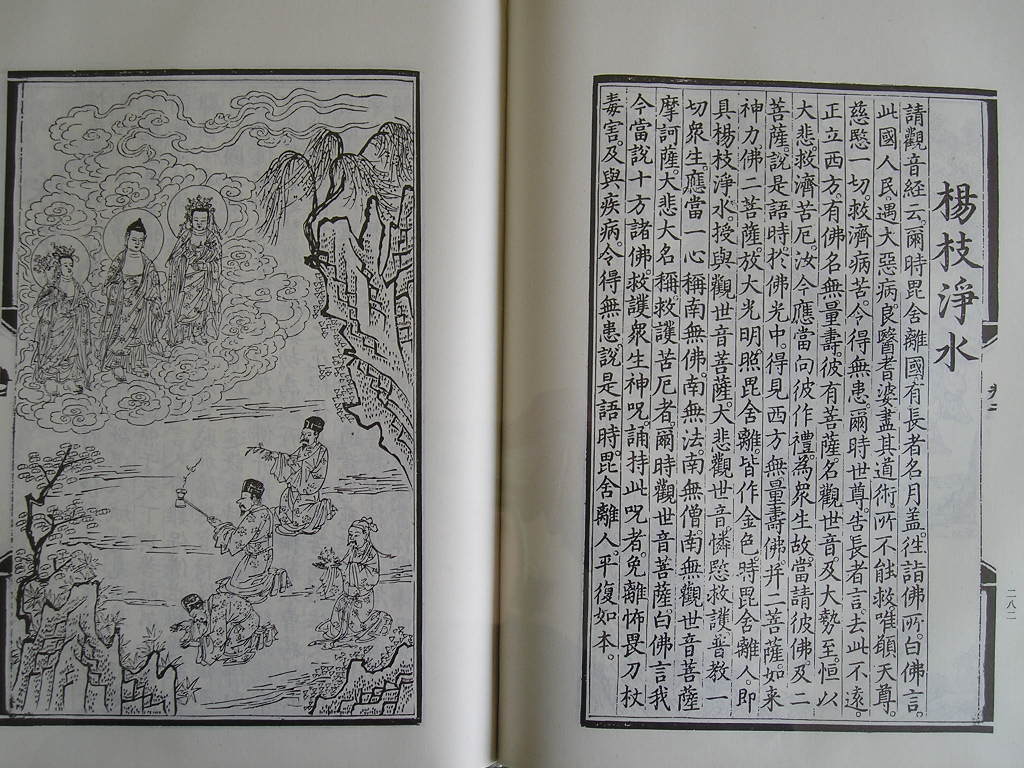 楊枝淨水
請觀音經云。爾時毘舍離國有長者名月蓋。往詣佛所。白佛言。
此國人民。遇大惡病。良醫耆婆盡其道術。所不能救。唯願天尊。
慈愍一切。救濟病苦。令得無患。爾時世尊。告長者言。去此不遠。
正立西方。有佛名無量壽。彼有菩薩名觀世音及大勢至。恒以
大悲。救濟苦厄。汝今應當向彼作禮。為眾生故。當請彼佛及二
菩薩。說是語時。於佛光中。得見西方無量壽佛。并二菩薩。如來
神力。佛二菩薩。放大光明。照毘舍離。皆作金色。時毘舍離人。即
具楊枝淨水。授與觀世音菩薩。大悲觀世音。憐愍救護。普教一
切眾生。應當一心稱南無佛。南無法。南無僧。南無觀世音菩薩
摩訶薩。大悲大名稱。救護苦厄者。爾時觀世音菩薩。白佛言。我
今當說十方諸佛。救護眾生神呪。誦持此呪者。免離怖畏刀杖
毒害。及與疾病。令得無患。說是語時。毘舍離人。平復如本。
二八二